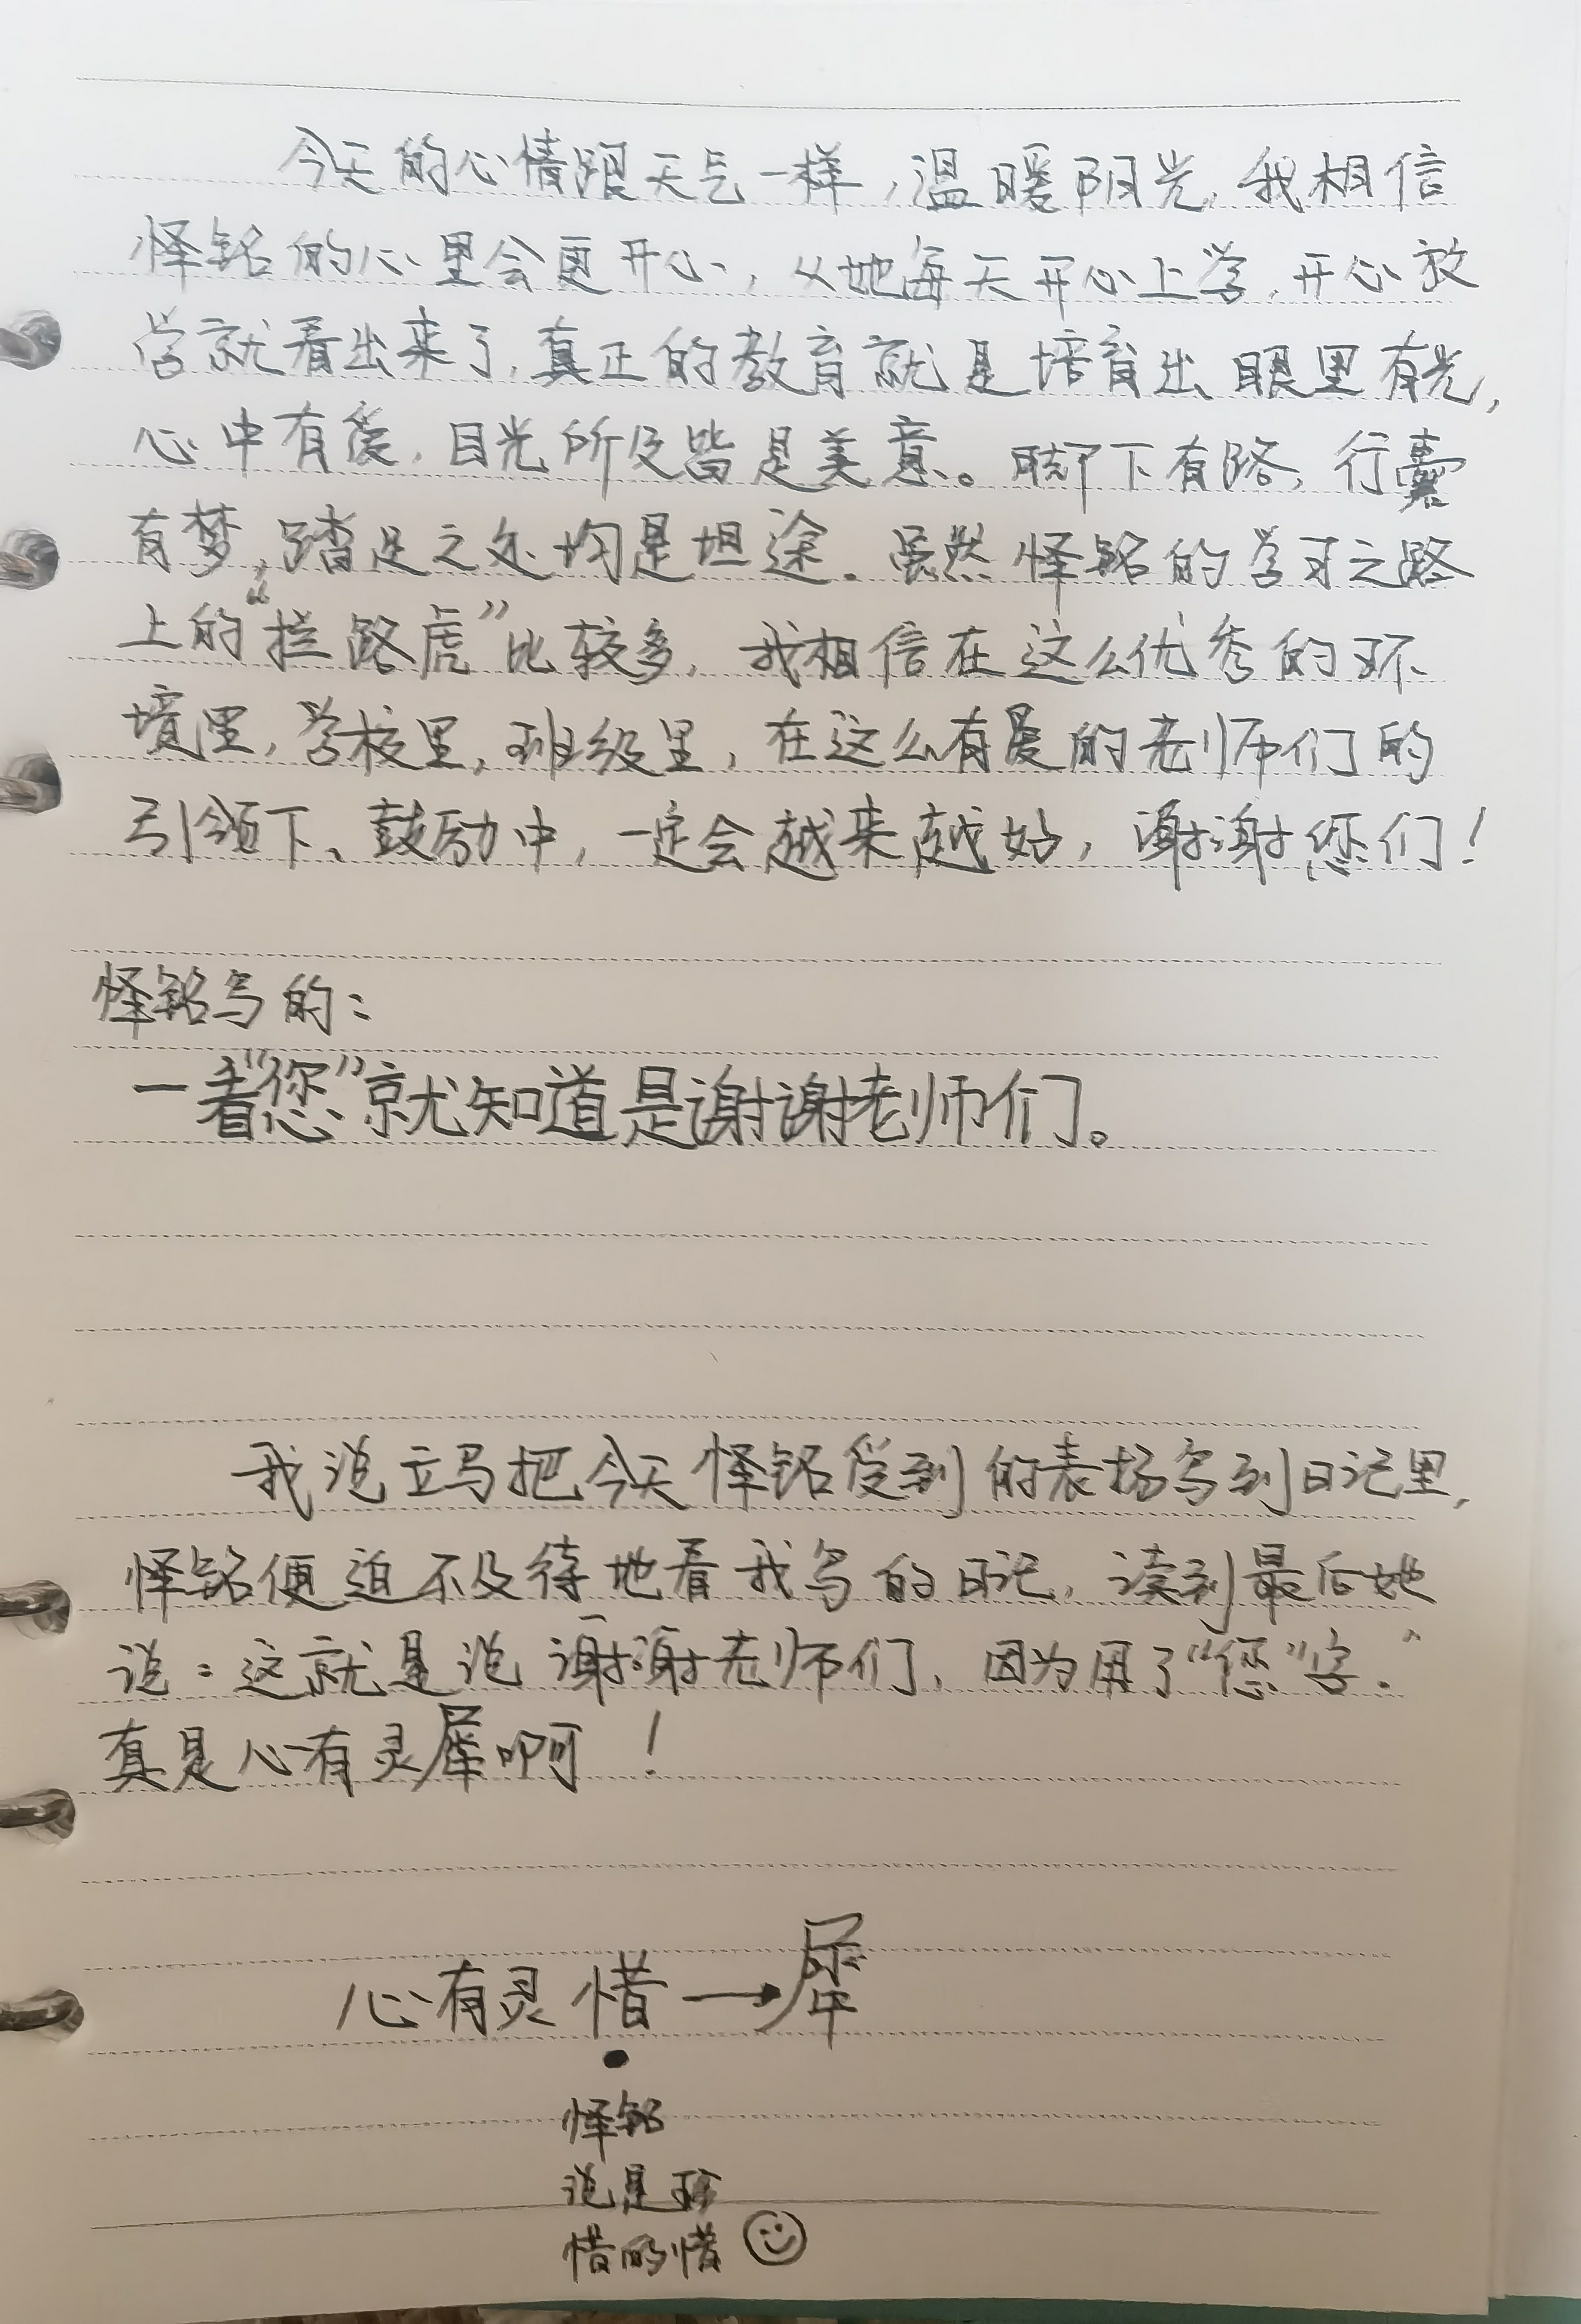 今天的心情跟天气一样，温暖阳光，我相信
怿铭的心里会更开心，从她每天开心上学，开心放
学就看出来了，真正的教育就是培育出眼里有光，
心中有爱，目光所及皆是美意。脚下有路，行囊
有梦，踏足之处均是坦途。虽然怿铭的学习之路
上的“拦路虎”比较多，我相信在这么优秀的环
境里，学校里，班级里，在这么有爱的老师们的
引领下、鼓励中，一定会越来越好，谢谢您们！
怿铭写的：
一看“您”就知道是谢谢老师们。
我说立马把今天怿铭受到的表扬写到日记里，
怿铭便迫不及待地看我写的日记，读到最后她
说：这就是说谢谢老师们，因为用了“您”字.”
真是心有灵犀啊！
心有灵惜→犀
怿铭
说是珍
惜的惜